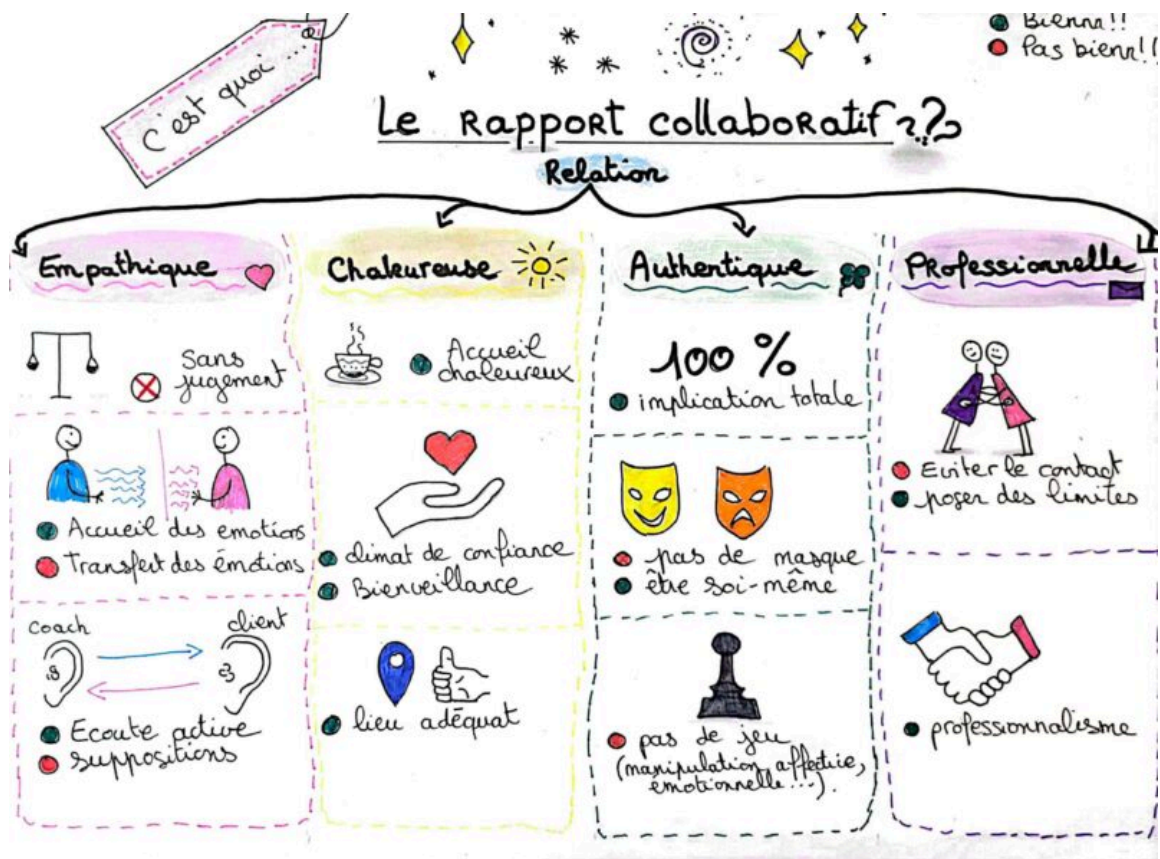 C'est quoi...
Bienn!!
Pas bienn!!
Le Rapport collaboratif ???
Relation
Empathique
Sans
jugement
Accueil des emotions
Transfert des émotions
coach
client
Ecoute active
suppositions
Chaleureuse
Accueil
chaleureux
climat de confiance
Bienveillance
lieu adéquat
Authentique
100 %
implication totale
pas de masque
être soi-même
pas de jeu
(manipulation affective,
emotionnelle....).
Professionnelle
Eviter le contact
poser des limites
professionnalisme